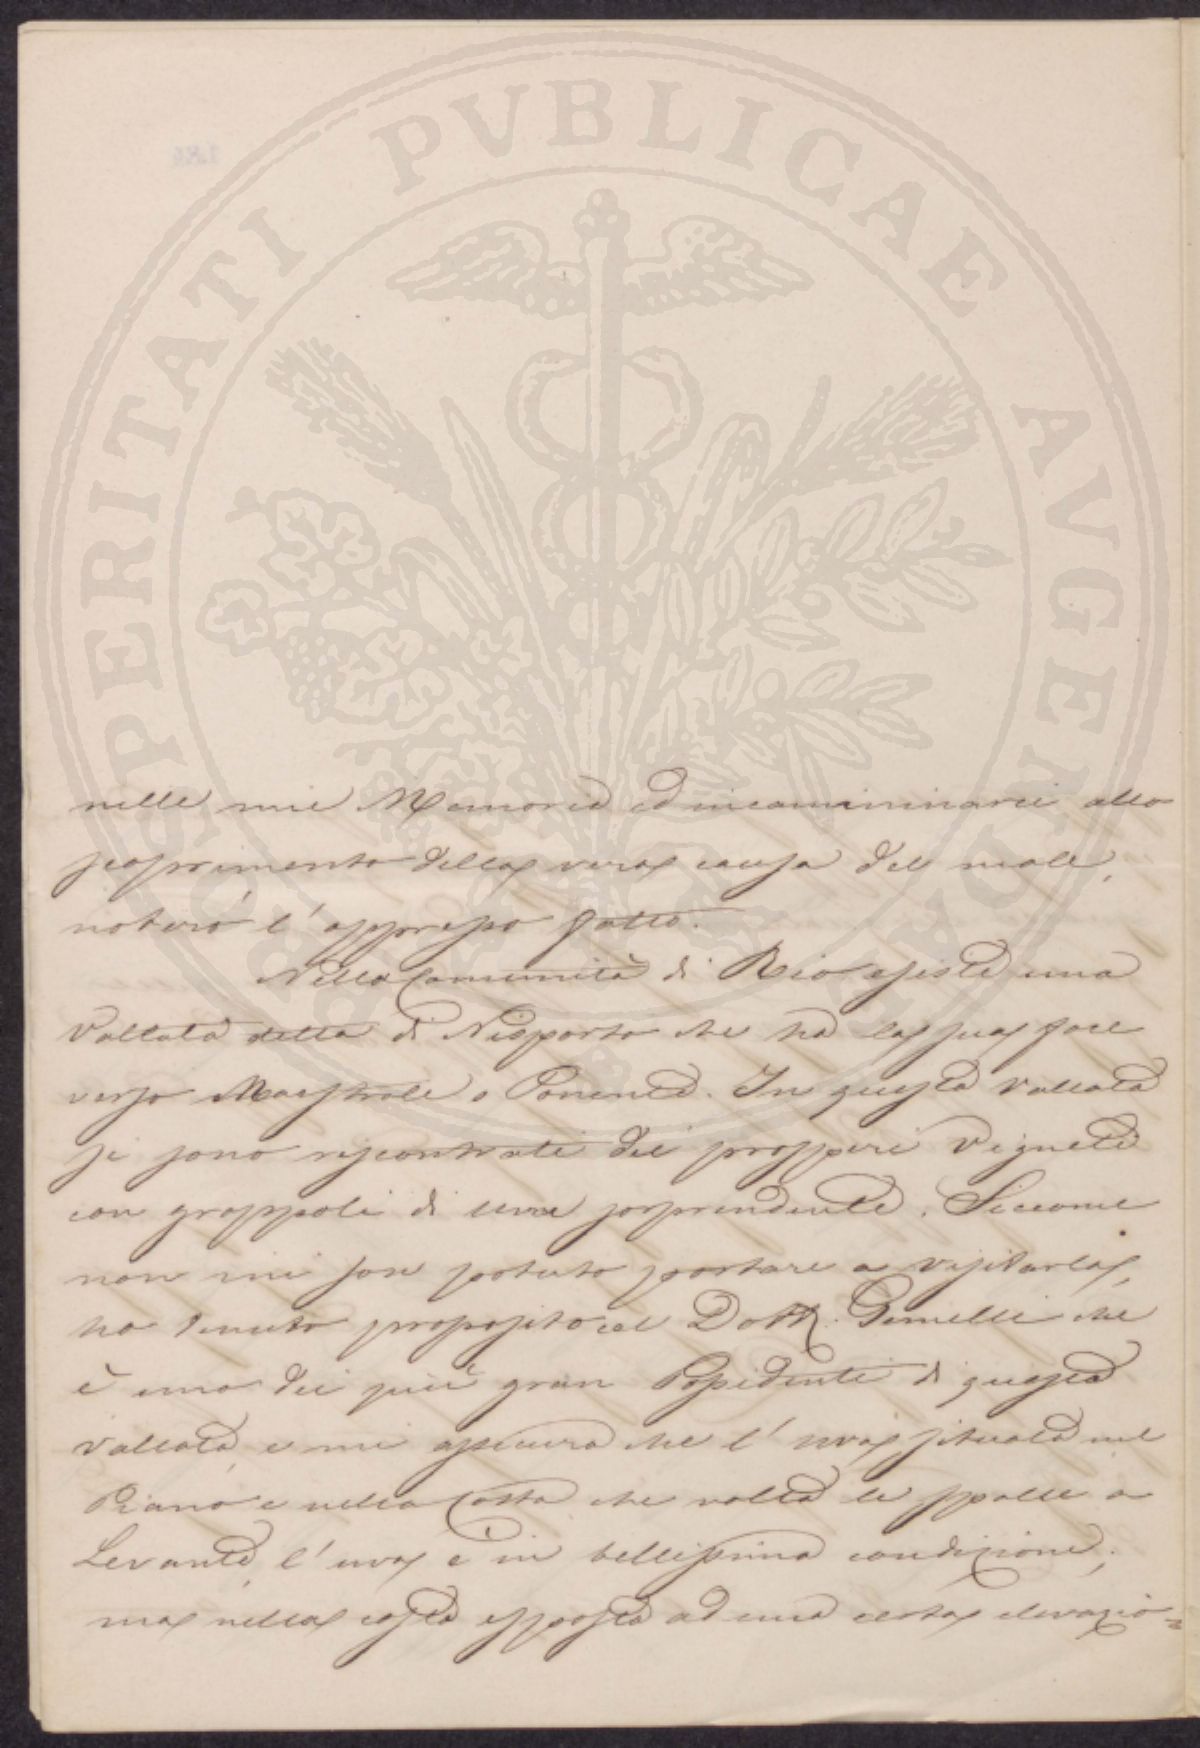 PROSPERITATI PVBLICAE AVGENDAE
nelle mie Memorie ed incamminarci allo
scoprimento della vera causa del male,
noterò l'appresso fatto.
Nella Comunità di Rio esiste una
Vallata detta di Nisporto che ha la sua foce
verso Maestrale e Ponente. In questa Vallata
si sono riscontrati dei prosperi Vigneti
con grappoli di uva sorprendente. Siccome
non mi son potuto portare a visitarla,
ho tenuto proposito col Dott. Gemelli che
è uno dei più gran Possidenti di questa
vallata, e mi assicura che l'uva situata nel
Piano e nella Costa che volta le spalle a
Levante, l'uva è in bellissima condizione;
ma nella costa opposta ad una certa elevazio=